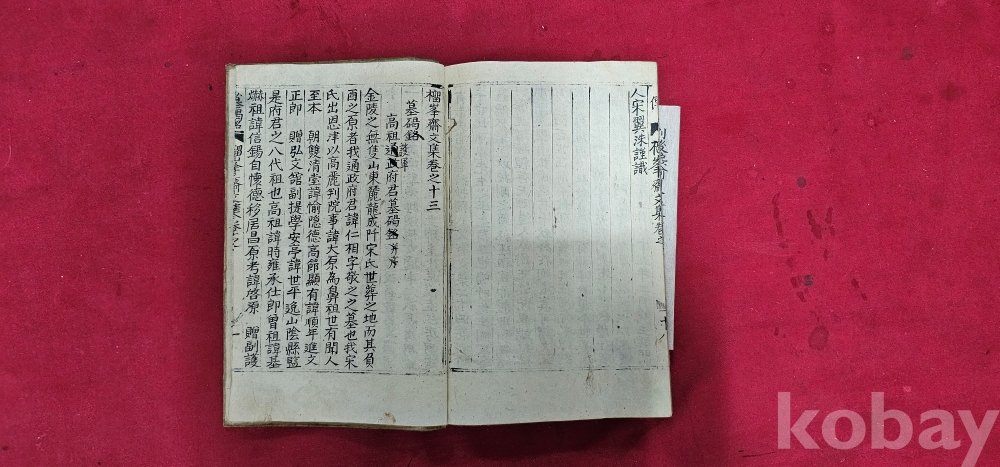 人宋翼洙謹識
文集卷之
榴峯齋文集卷之十三
墓碣銘
高祖通政府君墓碣銘 并序
金陵之無隻山東麓龍威阡宋氏世葬之地而其負
酉之原者我通政府君諱仁相字敬之之墓也我宋
氏出恩津以高麗判院事諱大原為鼻祖世有聞人
至本 朝雙清堂諱愉隱德高節顯有諱順年進文
正郎 贈弘文館副提學安亭諱世平逸山陰縣監
是府君之八代祖也高祖諱時雍承仕郎曾祖諱基
祖諱信錫自懷德移居昌原考諱啓原 贈副護
kobay